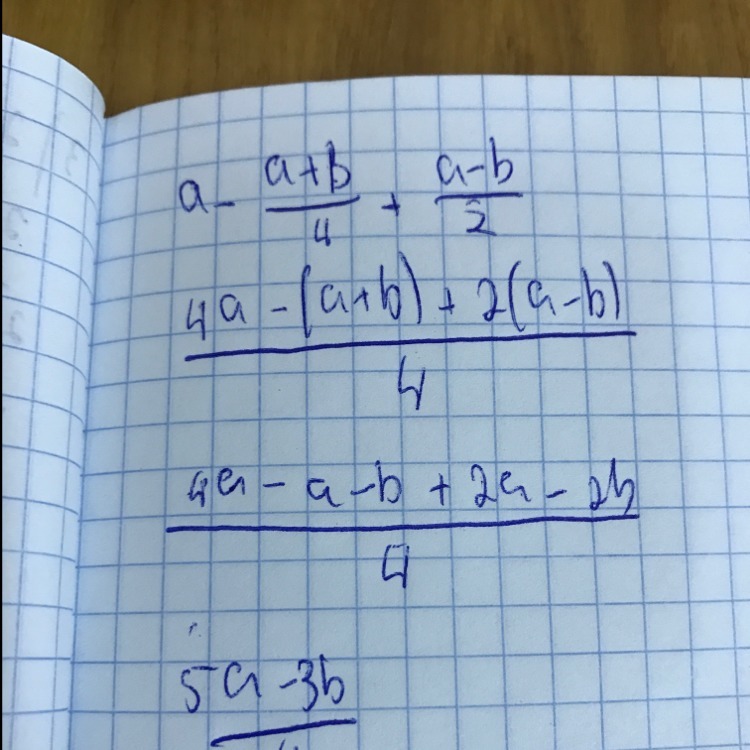 a - (a+b)/4 + (a-b)/2
(4a - (a+b) + 2(a-b))/4
(4a - a - b + 2a - 2b)/4
5a - 3b